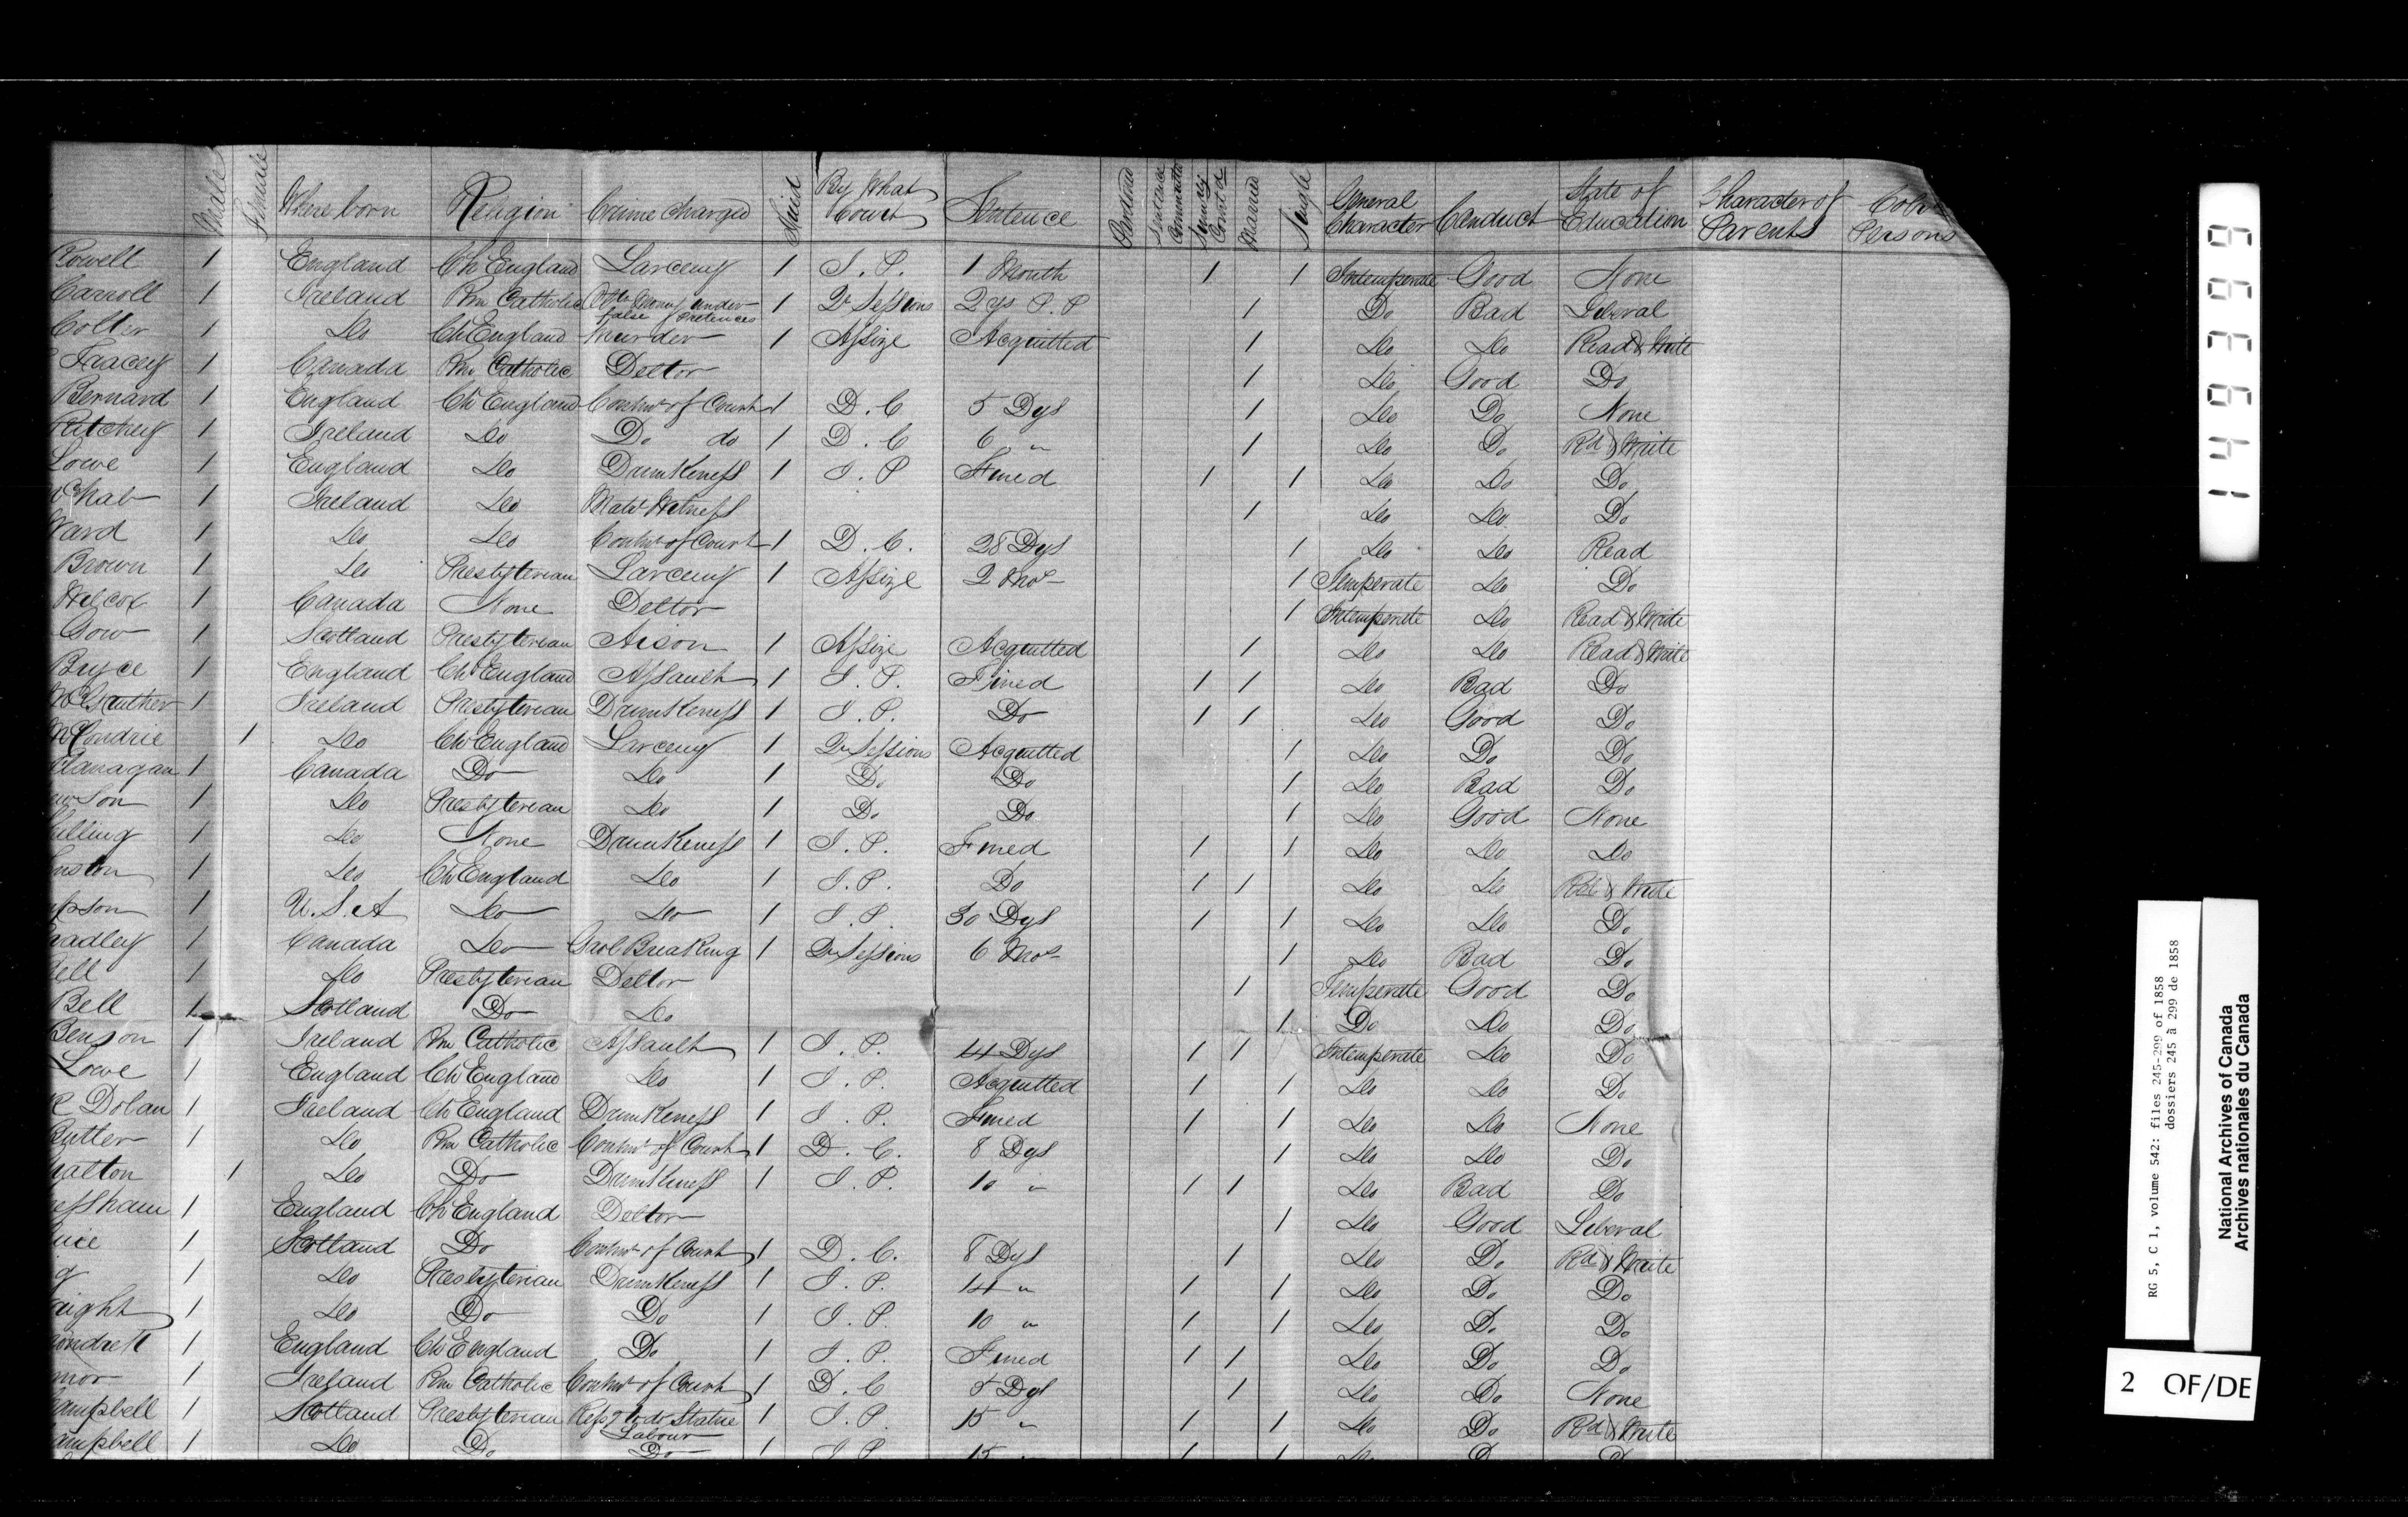 Male Female Where born Religion Crime charged Tried By What Court Sentence Pardoned Sentence Commuted Sumy Convd Married Single General Character Conduct State of Education Character of Parents Persons
Rowell 1 England Ch England Larceny 1 J. P. 1 Month 1 1 Intemperate Good None
Carroll 1 Ireland Rm Catholic Obtg Money under false Pretences 1 Qr Sessions 2 ys P. P 1 Do Bad Liberal
Colter 1 Do Ch England Murder 1 Assize Acquitted 1 Do Do Read & Write
Tracey 1 Canada Rm Catholic Debtor 1 Do Good Do
Bernard 1 England Ch England Contmt of Court 1 D. C 5 Dys 1 Do Do None
Ritchey 1 Ireland Do Do do 1 D. C 6 " 1 Do Do Rd & Write
Lowe 1 England Do Drunkeness 1 J. P Fined 1 1 Do Do Do
1 Ireland Do Matl Witness 1 Do Do Do
Ward 1 Do Do Contmt of Court 1 D. C. 28 Dys 1 Do Do Read
Brown 1 Do Presbyterian Larceny 1 Assize 2 Mos 1 Temperate Do Do
Wilcox 1 Canada None Debtor 1 Intemperate Do Read & Write
Gow 1 Scotland Presbyterian Arson 1 Assize Acquitted 1 Do Do Read & Write
Bryce 1 England Ch England Assault 1 J. P. Fined 1 1 Do Bad Do
1 Ireland Presbyterian Drunkeness 1 J. P. Do 1 1 Do Good Do
McCondrie 1 Do Ch England Larceny 1 Qr Sessions Acquitted 1 Do Do Do
Flanagan 1 Canada Do Do 1 Do Do 1 Do Bad Do
wson 1 Do Presbyterian Do 1 Do Do 1 Do Good None
illing 1 Do None Drunkeness 1 J. P. Fined 1 1 Do Do Do
nston 1 Do Ch England Do 1 J. P. Do 1 1 Do Do Rd & Write
pson 1 U. S. A Do Do 1 J. P. 30 Dys 1 1 Do Do Do
adley 1 Canada Do Gaol Breaking 1 Qr Sessions 6 Mos 1 Do Bad Do
ell 1 Do Presbyterian Debtor 1 Temperate Good Do
Bell 1 Scotland Do Do 1 Do Do Do
Benson 1 Ireland Rm Catholic Assault 1 J. P. 14 Dys 1 1 Intemperate Do Do
Lowe 1 England Ch England Do 1 J. P. Acquitted 1 1 Do Do Do
Dolan 1 Ireland Ch England Drunkeness 1 J. P. Fined 1 1 Do Do None
Butler 1 Do Rm Catholic Contmt of Court 1 D. C. 8 Dys 1 Do Do Do
alton 1 Do Do Drunkeness 1 J. P. 10 " 1 1 Do Bad Do
essham 1 England Ch England Debtor 1 Do Good Liberal
uce 1 Scotland Do Contmt of Court 1 D. C. 8 Dys 1 Do Do Rd & Write
g 1 Do Presbyterian Drunkeness 1 J. P. 14 " 1 1 Do Do Do
right 1 Do Do Do 1 J. P. 10 " 1 1 Do Do Do
ondrett 1 England Ch England Do 1 J. P. Fined 1 1 Do Do Do
nor 1 Ireland Rm Catholic Contmt of Court 1 D. C 5 Dys 1 Do Do None
Campbell 1 Scotland Presbyterian Refsg to do Statue Labour 1 J. P. 15 " 1 1 Do Do Rd & Write
ampbell 1 Do Do Do 1 J. P. 15 " 1 1 Do D D
1493799
RG 5, C 1, volume 542: files 245-299 of 1858
dossiers 245 à 299 de 1858
National Archives of Canada
Archives nationales du Canada
2 OF/DE